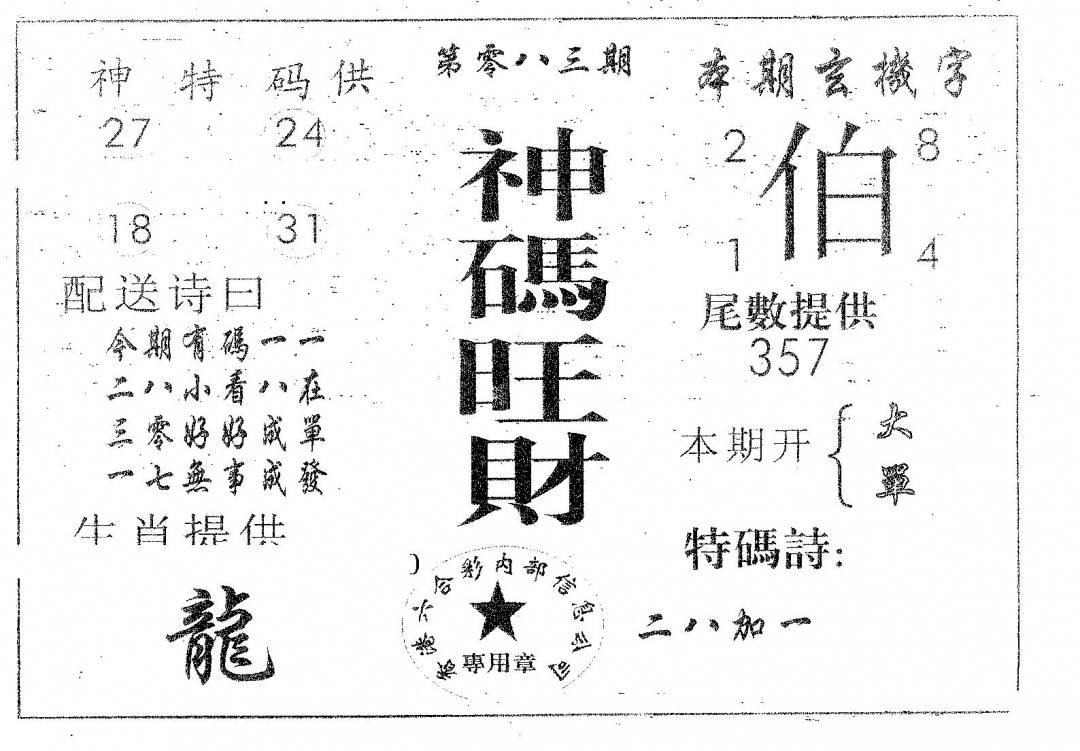 神特码供
27 24
18 31
配送诗曰
今期有碼一一
二八小看八在
三零好好成單
一七無事成發
生肖提供
龍
第零八三期
神碼旺財
香港六合彩内部信息公司
專用章
本期玄機字
2 伯 8
1 4
尾數提供
357
本期开{大
單
特碼詩:
二八加一